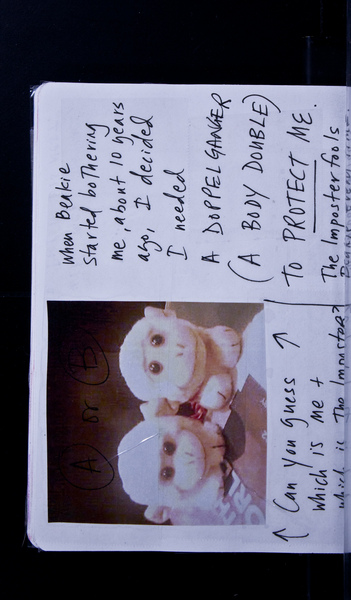 When Beakie
started bothering
me, about 10 years
ago, I decided
I needed
A DOPPELGANGER
(A BODY DOUBLE)
TO PROTECT ME.
The Imposter fools
A or B
↑ Can you guess ↑
which is me +
which is The Impostor?